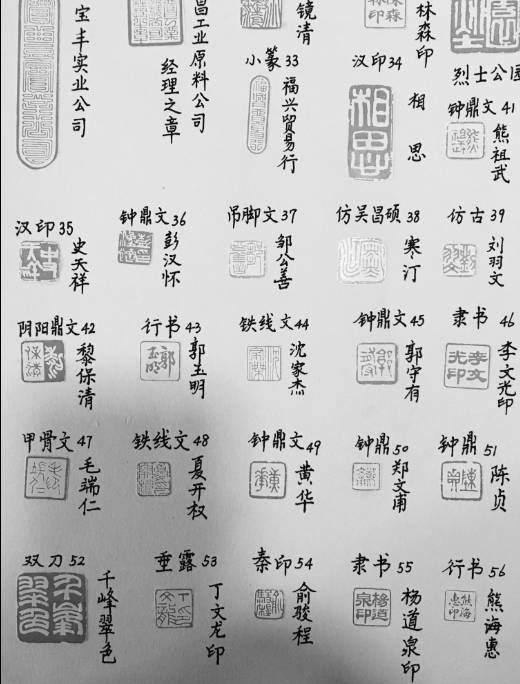 宝丰实业公司
昌工业原料公司
经理之章
镜清
林森印
林森印
烈士公园
小篆33
福兴贸易行
汉印34
相思
相思
钟鼎文41
熊祖武
汉印35
史天祥
钟鼎文36
彭汉怀
吊脚文37
邹公善
仿吴昌硕38
寒汀
仿古39
刘羽文
阴阳鼎文42
黎保清
行书43
郭玉明
郭玉明
铁线文44
沈家杰
钟鼎文45
郭守有
隶书46
李文光印
李文光印
甲骨文47
毛瑞仁
铁线文48
夏开权
钟鼎文49
黄华
钟鼎50
郑文甫
钟鼎51
陈贞
双刀52
千峰翠色
千峰翠色
垂露53
丁文龙印
秦印54
俞骏程
隶书55
杨道泉印
杨道泉印
行书56
熊海惠
熊海惠印